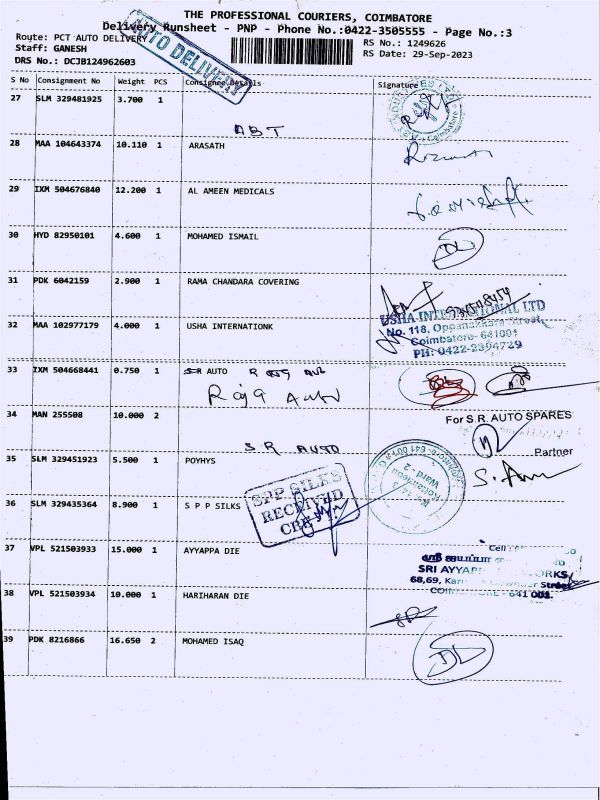 THE PROFESSIONAL COURIERS, COIMBATORE
Delivery Runsheet - PNP - Phone No.:0422-3505555 - Page No.:3
Route: PCT AUTO DELIVERY
Staff: GANESH
DRS No.: DCJB124962603
RS No.: 1249626
RS Date: 29-Sep-2023
AUTO DELIVERY
S No Consignment No Weight PCS Consignee Details Signature
27 SLM 329481925 3.700 1
ABT
28 MAA 104643374 10.110 1 ARASATH
29 IXM 504676840 12.200 1 AL AMEEN MEDICALS
30 HYD 82950101 4.600 1 MOHAMED ISMAIL
31 PDK 6042159 2.900 1 RAMA CHANDARA COVERING
32 MAA 102977179 4.000 1 USHA INTERNATIONK
USHA INTERNATIONAL LTD
No. 118, Oppanakkara Street,
Coimbatore- 641001
PH: 0422-2394739
33 IXM 504668441 0.750 1 SR AUTO
Raja Auto
34 MAN 255508 10.000 2
S R AUTO
For S.R. AUTO SPARES
Partner
35 SLM 329451923 5.500 1 POYHYS
36 SLM 329435364 8.900 1 S P P SILKS
SPP SILKS
RECEIVED
CBE
37 VPL 521503933 15.000 1 AYYAPPA DIE
Cell :
ஸ்ரீ ஐயப்பா
SRI AYYAPPA WORKS
68,69, Street
COIMBATORE - 641 001.
38 VPL 521503934 10.000 1 HARIHARAN DIE
39 PDK 8216866 16.650 2 MOHAMED ISAQ